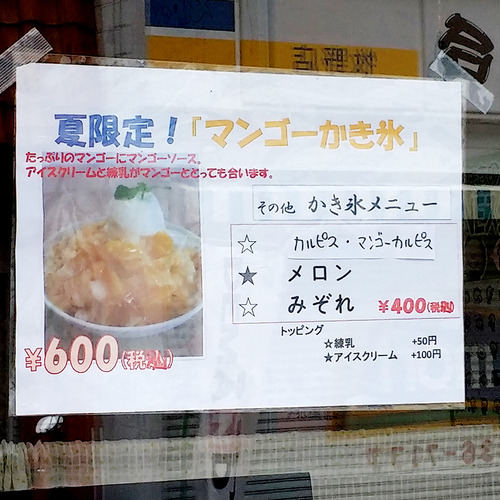 夏限定！「マンゴーかき氷」
たっぷりのマンゴーにマンゴーソース。
アイスクリームと練乳がマンゴーととっても合います。
その他 かき氷メニュー
☆ カルピス・マンゴーカルピス
★ メロン
☆ みぞれ ¥400(税込)
¥600(税込)
トッピング
☆練乳 +50円
★アイスクリーム +100円